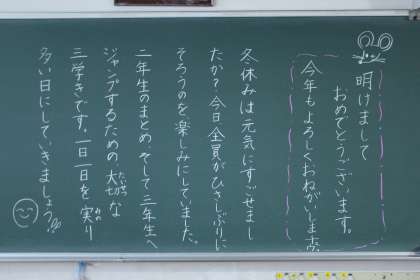 明けまして
おめでとうございます。
今年もよろしくおねがいします。
冬休みは元気にすごせまし
たか？今日全員がひさしぶりに
そろうのを、楽しみにしていました。
二年生のまとめ、そして三年生へ
ジャンプするための、大切な
たいせつ
三学きです。一日一日を実り
みの
多い日にしていきましょう。